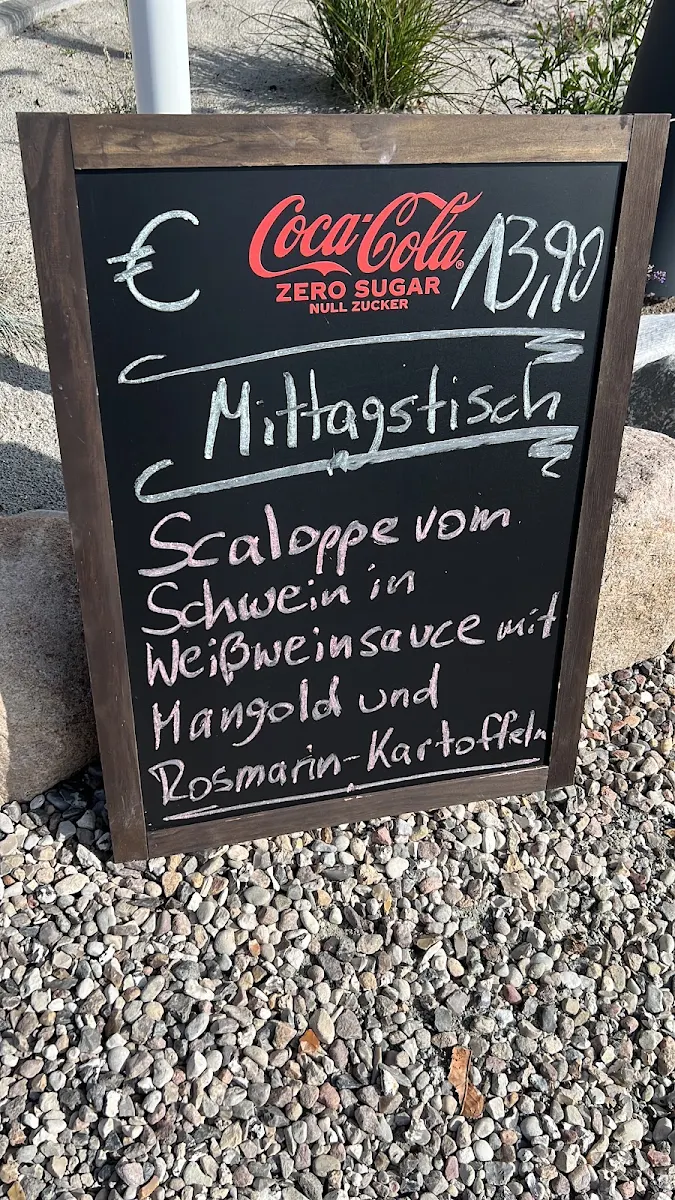 € Coca-Cola 13,90
ZERO SUGAR
NULL ZUCKER
Mittagstisch
Scaloppe vom
Schwein in
Weißweinsauce mit
Mangold und
Rosmarin-Kartoffeln